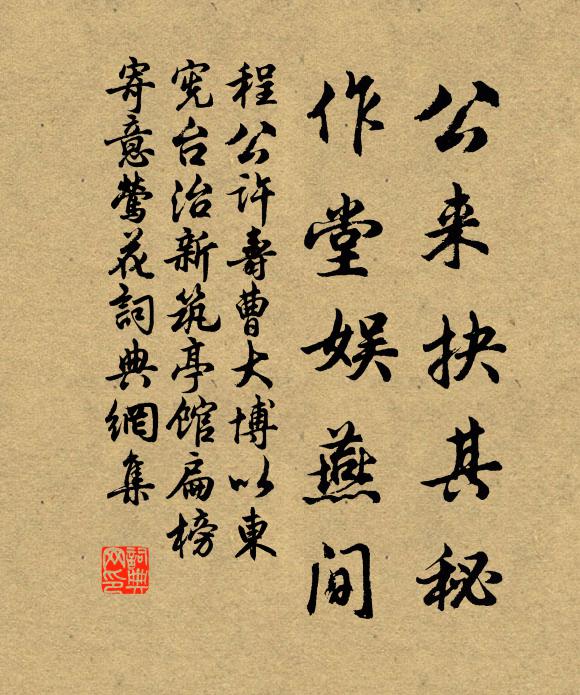 公来抉其秘
作堂娱燕间
程公许寿曹大博以東
宪台治新筑亭馆扁榜
寄意莺花詞典網集
詞典网印